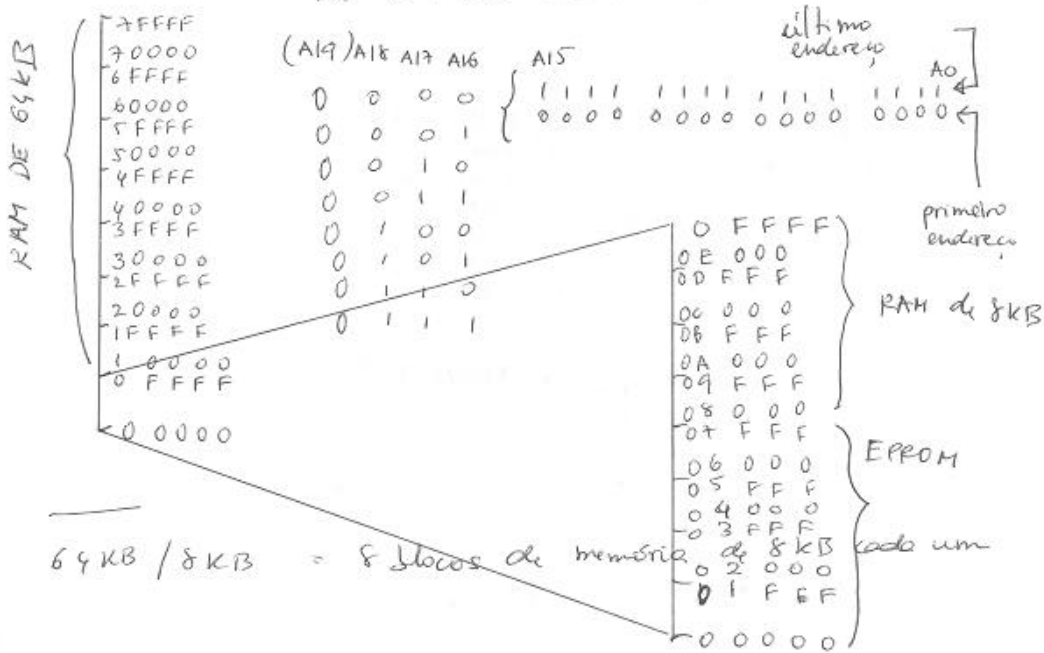 RAM DE 64KB
7FFFF
70000
6FFFF
60000
5FFFF
50000
4FFFF
40000
3FFFF
30000
2FFFF
20000
1FFFF
10000
0FFFF
00000
(A19) A18 A17 A16
0 0 0 0
0 0 0 1
0 0 1 0
0 0 1 1
0 1 0 0
0 1 0 1
0 1 1 0
0 1 1 1
último
endereço
A15 A0
1 1 1 1 1 1 1 1 1 1 1 1 1 1 1 1
0 0 0 0 0 0 0 0 0 0 0 0 0 0 0 0
primeiro
endereço
0FFFF
0E000
0DFFF
0C000
0BFFF
0A000
09FFF
08000
07FFF
06000
05FFF
04000
03FFF
02000
01FFF
00000
RAM de 8KB
EPROM
64KB / 8KB = 8 blocos de memória de 8KB cada um